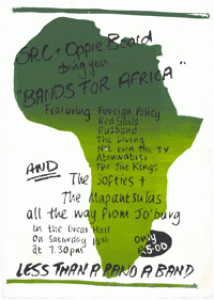 SRC + Oppie Board
bring you
"BANDS FOR AFRICA"
Featuring: Foreign Policy
Red Sails
The Living
Not Even the TV
Abonwabisi
The Jive Kings
AND
The Softies +
The Mapantsulas
all the way from Jo'burg
In the Great Hall
On Saturday
at 7.30pm
Only
R5.00
LESS THAN A RAND A BAND